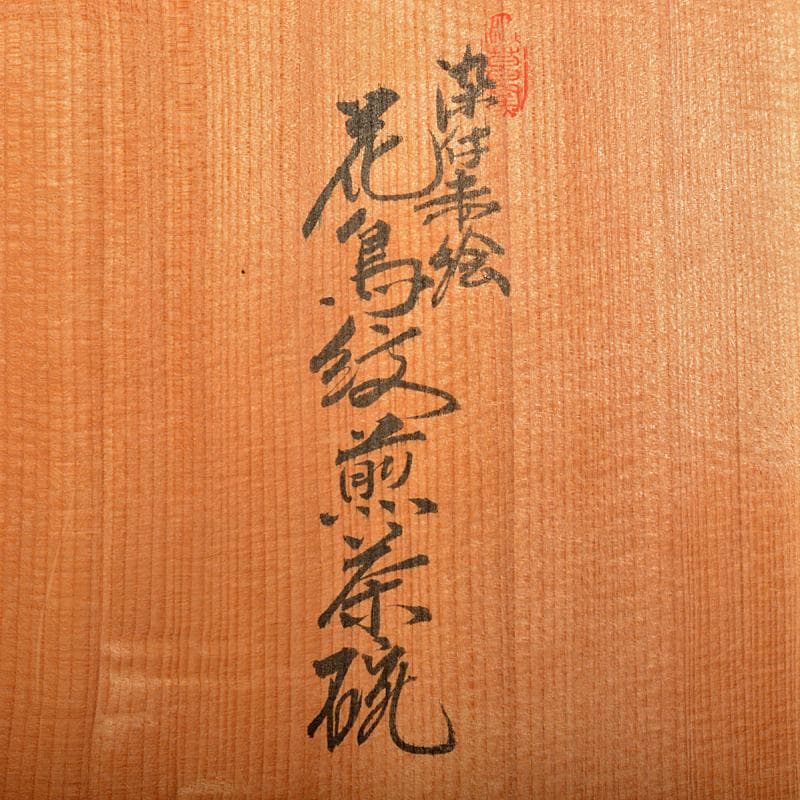 染付赤絵
花鳥紋煎茶碗